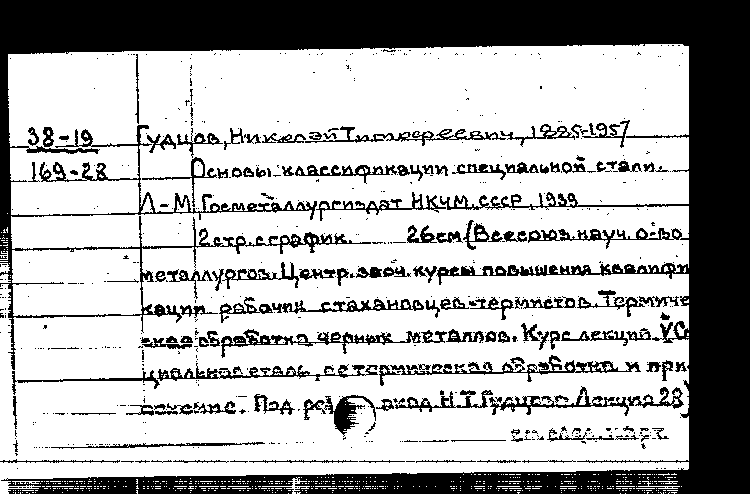 38-19 Гудцов, Николай Тимофеевич, 1885-1957
169-28 Основы классификации специальной стали.
Л-М, Госметаллургиздат НКЧМ СССР, 1939
2 стр. с график. 26 см (Всесоюз. науч. о-во
металлургов. Центр. заоч. курсы повышения квалифи
кации рабочих стахановцев-термистов. Термиче
ская обработка черных металлов. Курс лекций. V Сп
циальная сталь, ее термическая обработка и при
менение. Под ред. акад. Н.Т. Гудцова Лекция 28)
см. след. карт.